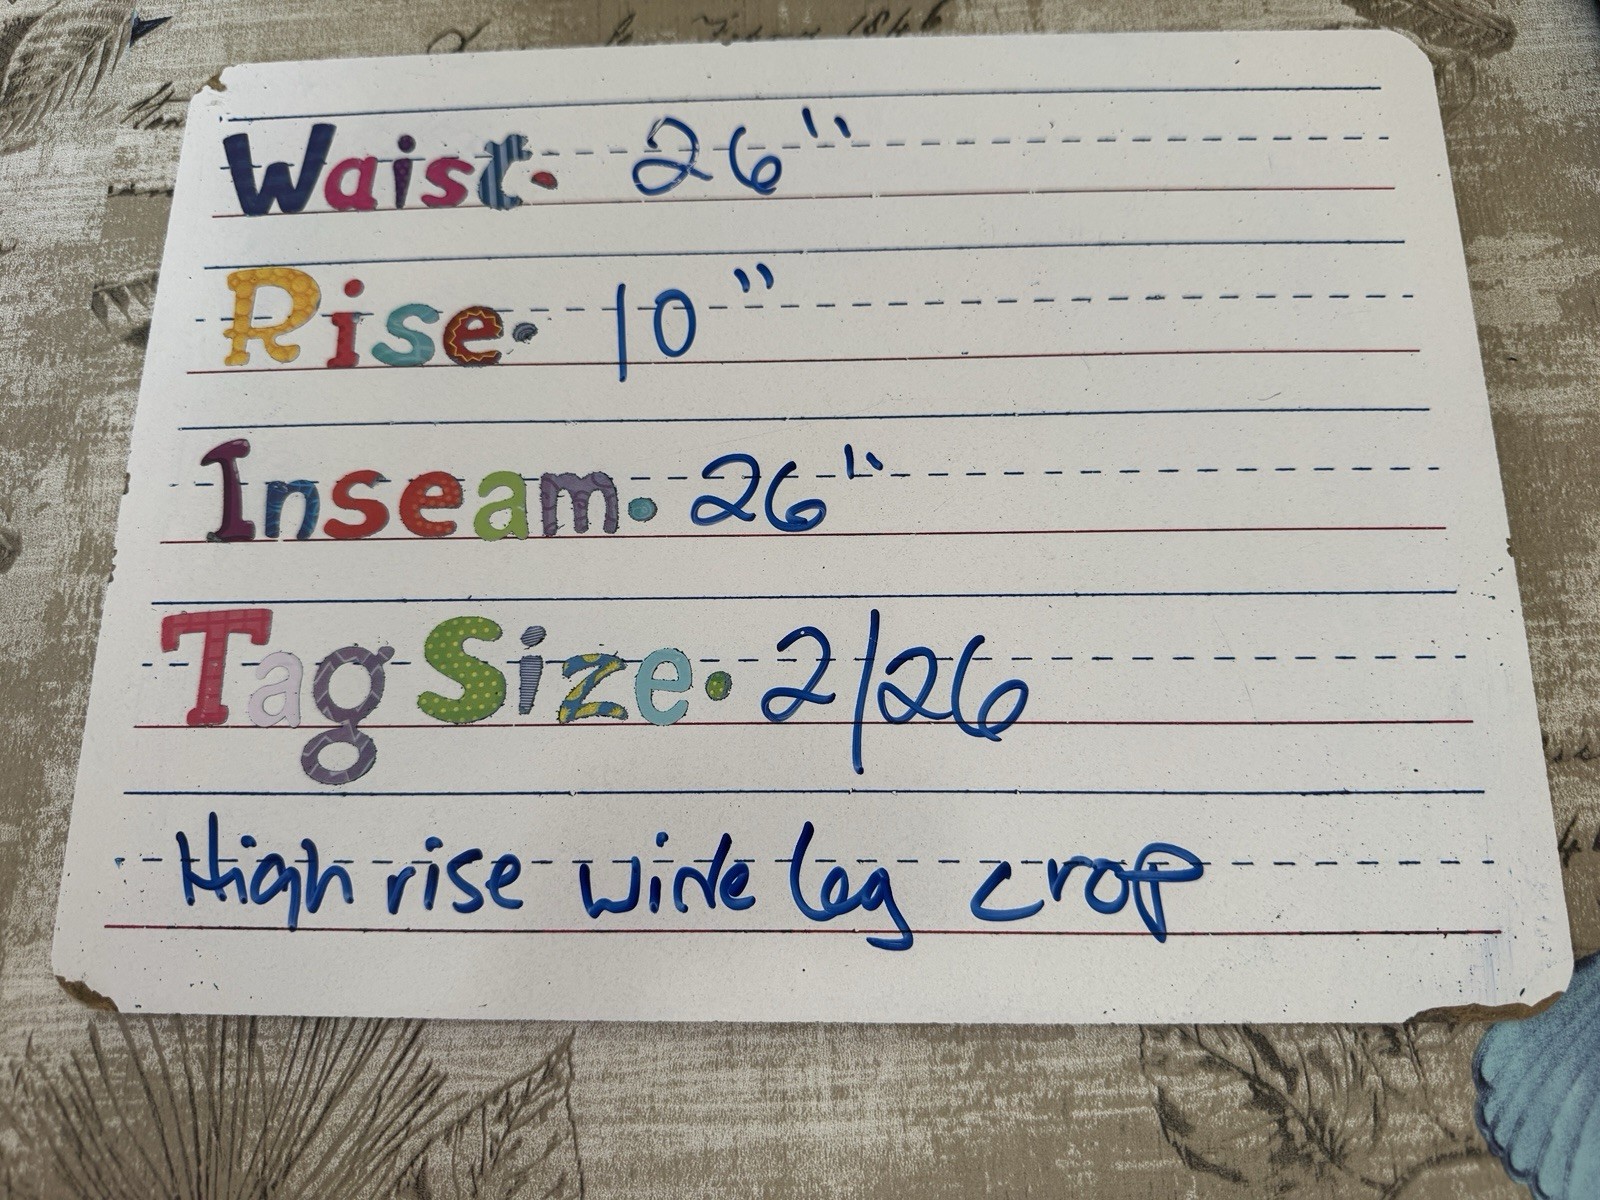 Waist. 26"
Rise. 10"
Inseam. 26"
Tag Size. 2/26
High rise wide leg crop
1846